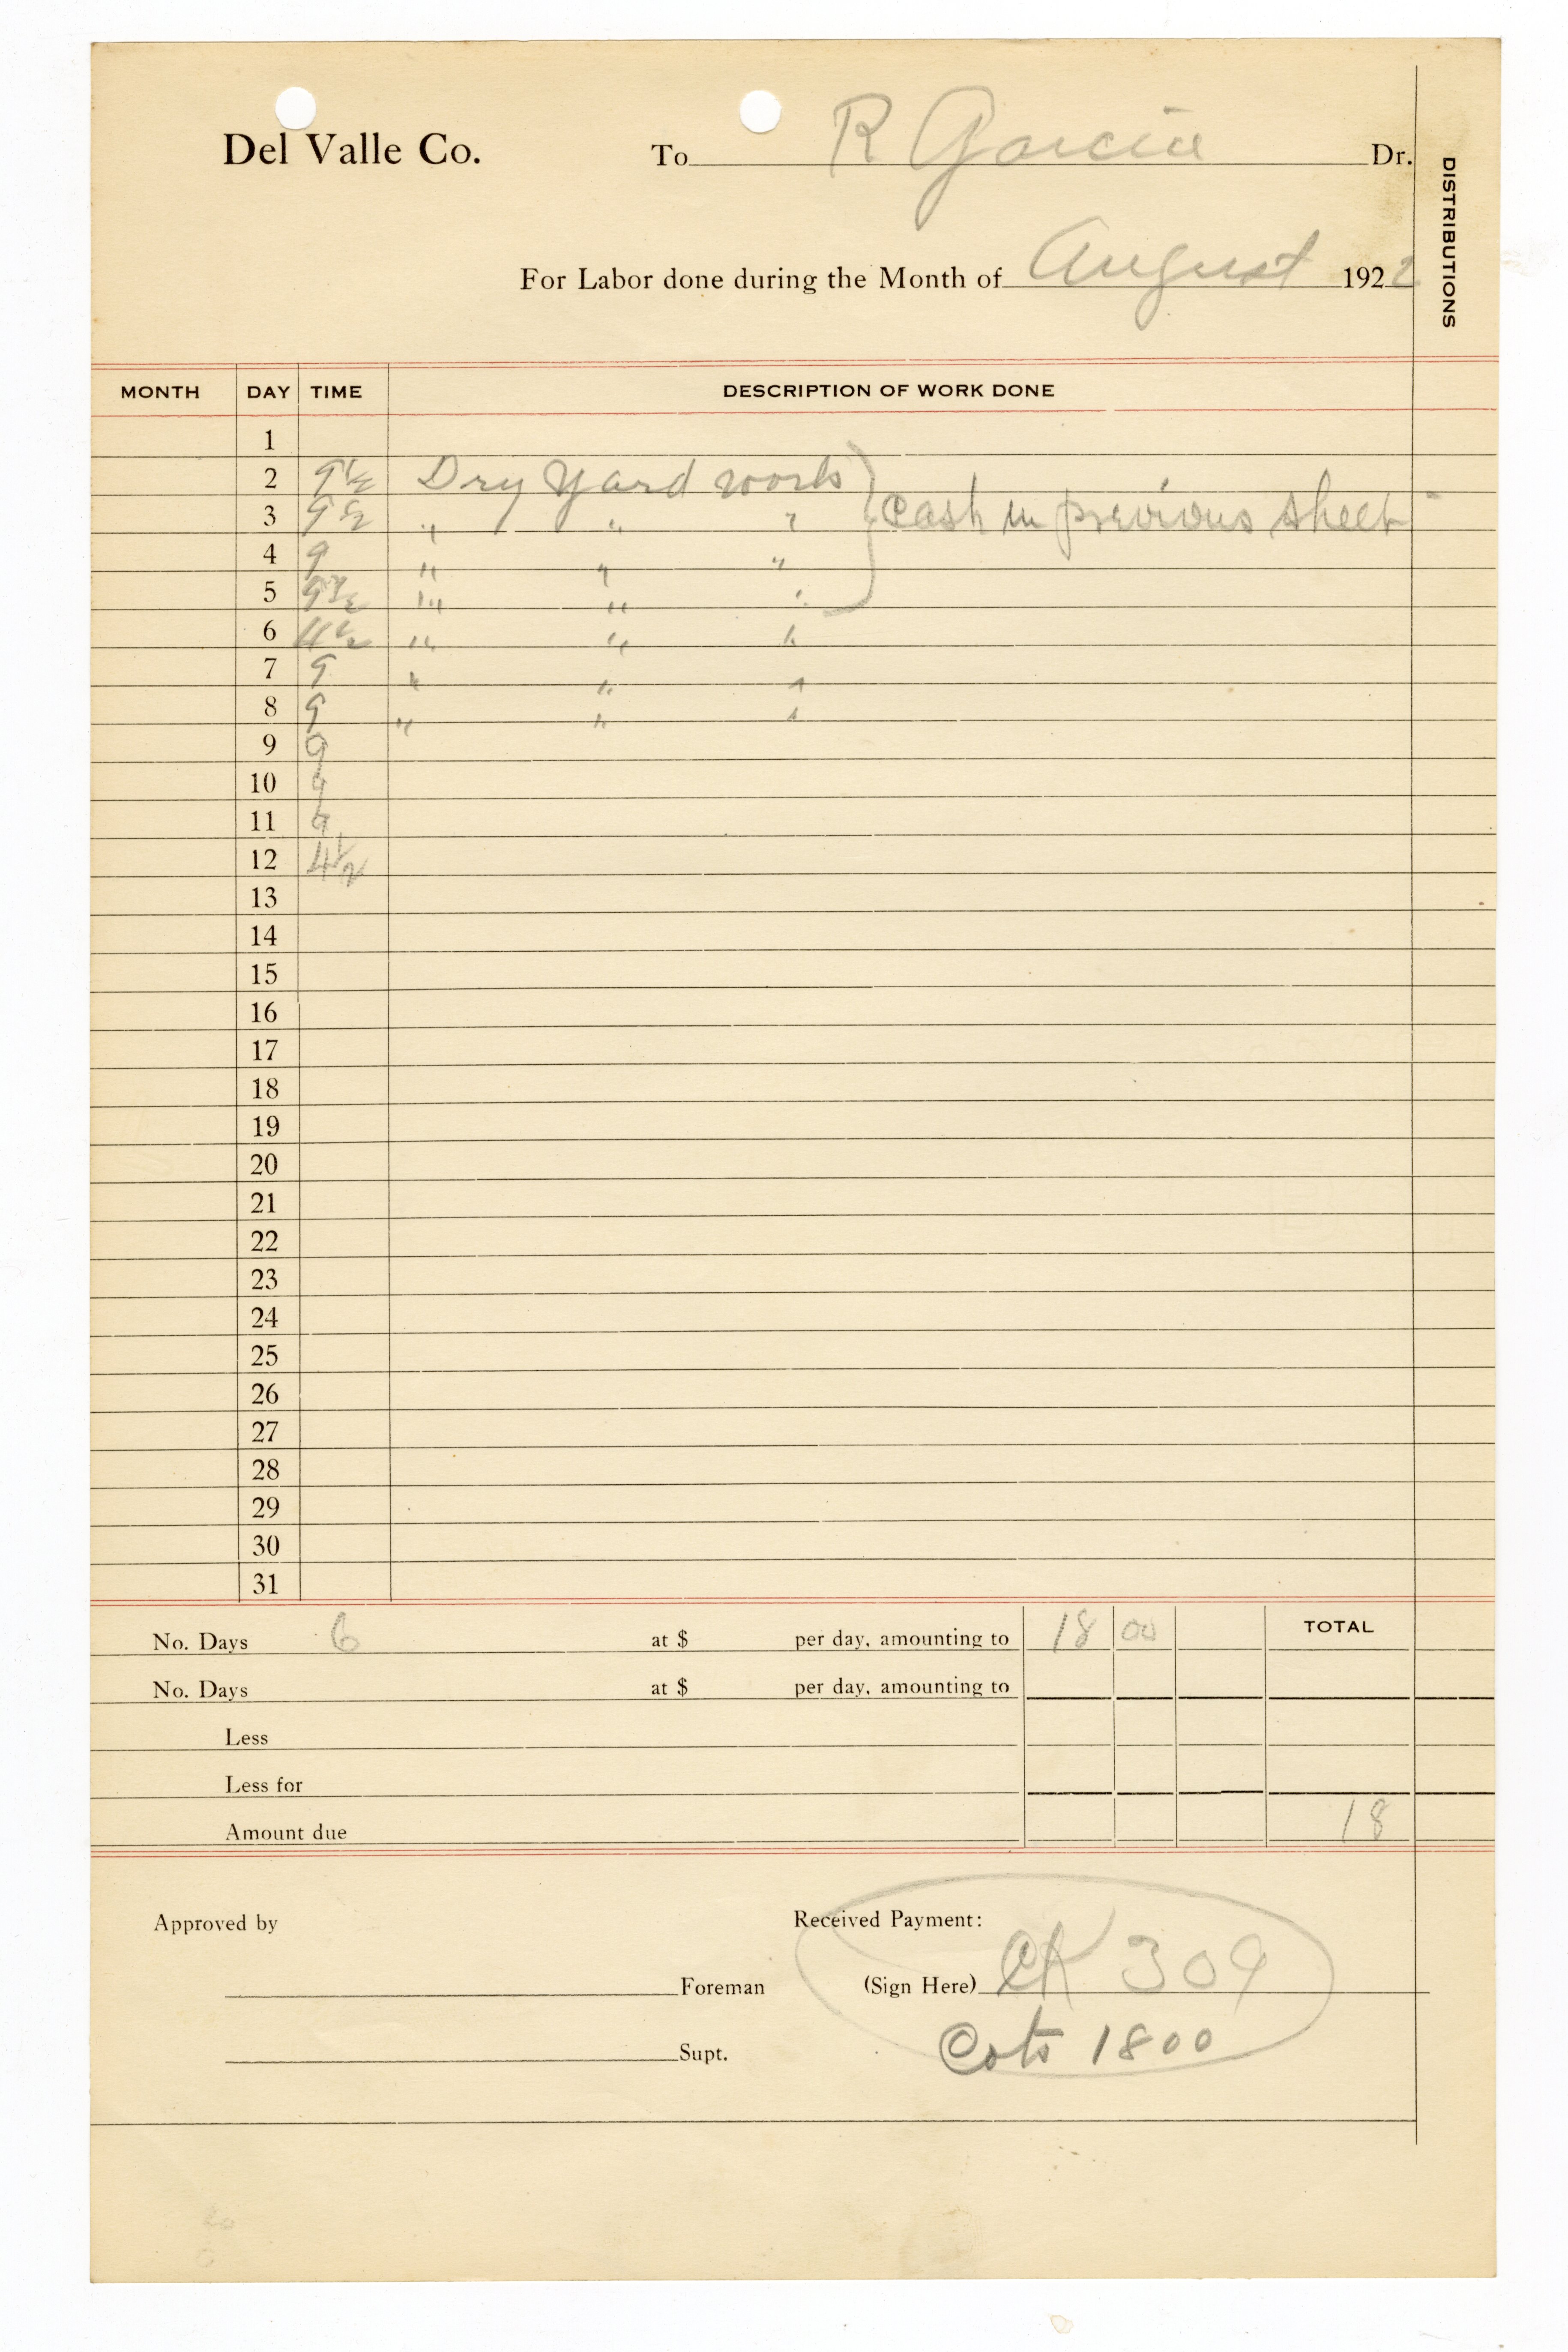 Del Valle Co. To R Garcia Dr.
DISTRIBUTIONS
For Labor done during the Month of August 1922
MONTH DAY TIME DESCRIPTION OF WORK DONE
1
2 9½ Dry Yard work
3 9½ " " " Cash in previous sheet
4 9 " " "
5 9½ " " "
6 4½ " " "
7 9 " " "
8 9 " " "
9 9
10 9
11 9
12 4½
13
14
15
16
17
18
19
20
21
22
23
24
25
26
27
28
29
30
31
No. Days 6 at $ per day, amounting to 18 00 TOTAL
No. Days at $ per day, amounting to
Less
Less for
Amount due 18
Approved by Received Payment:
Foreman (Sign Here) CK 309
Supt. Cots 1800